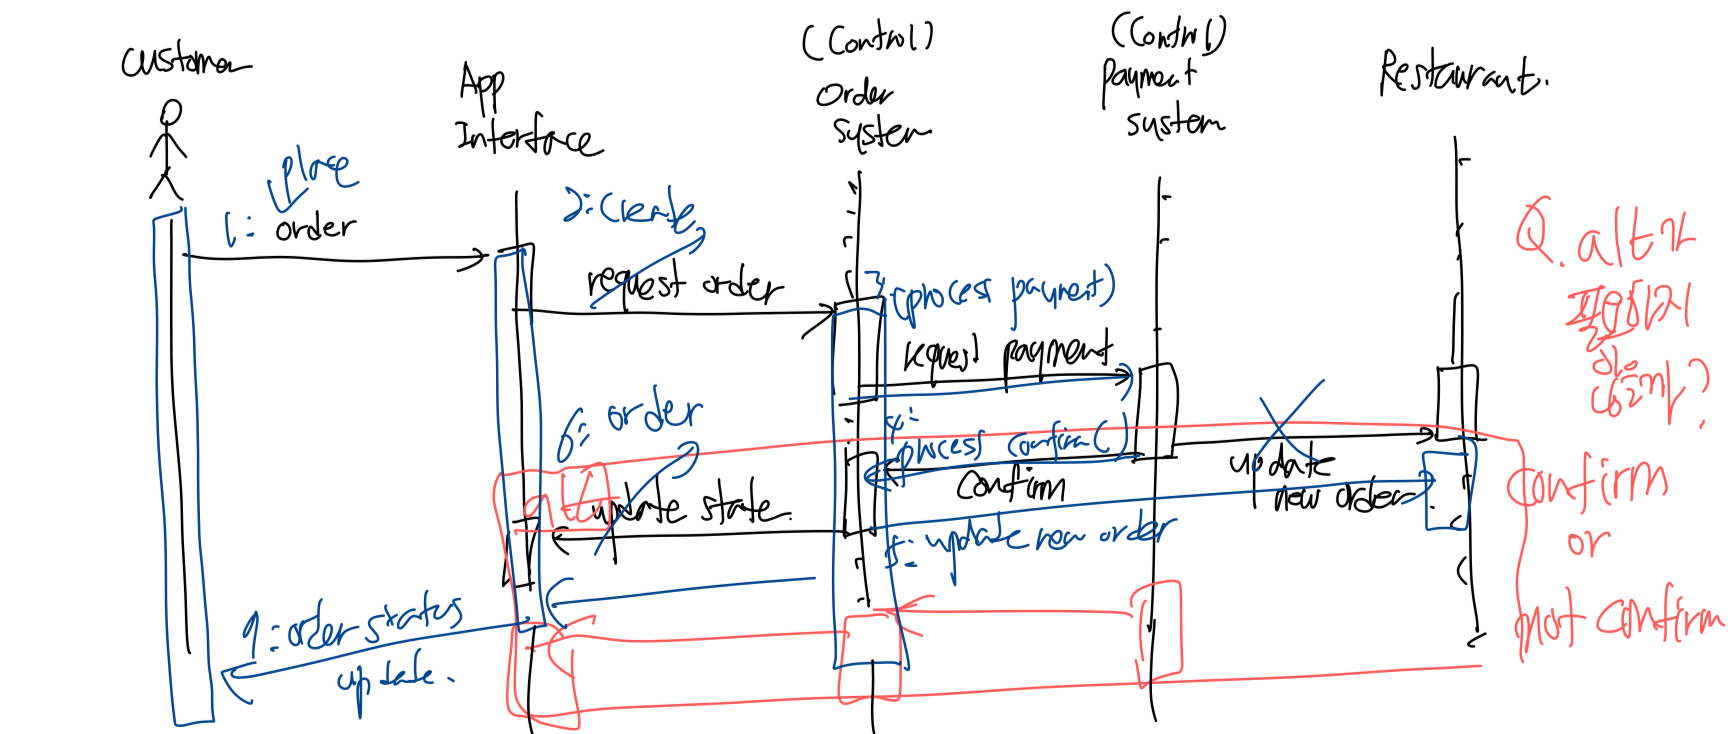 Customer
App
Interface
(Control)
Order
System
(Control)
Payment
System
Restaurant.
place
1: order
2: create
request order
3:
(process payment)
request payment
4:
process confirm()
confirm
update
new order
5: update new order
6: order
update state.
alt
9: order status
update.
Q. alt
confirm
or
not confirm